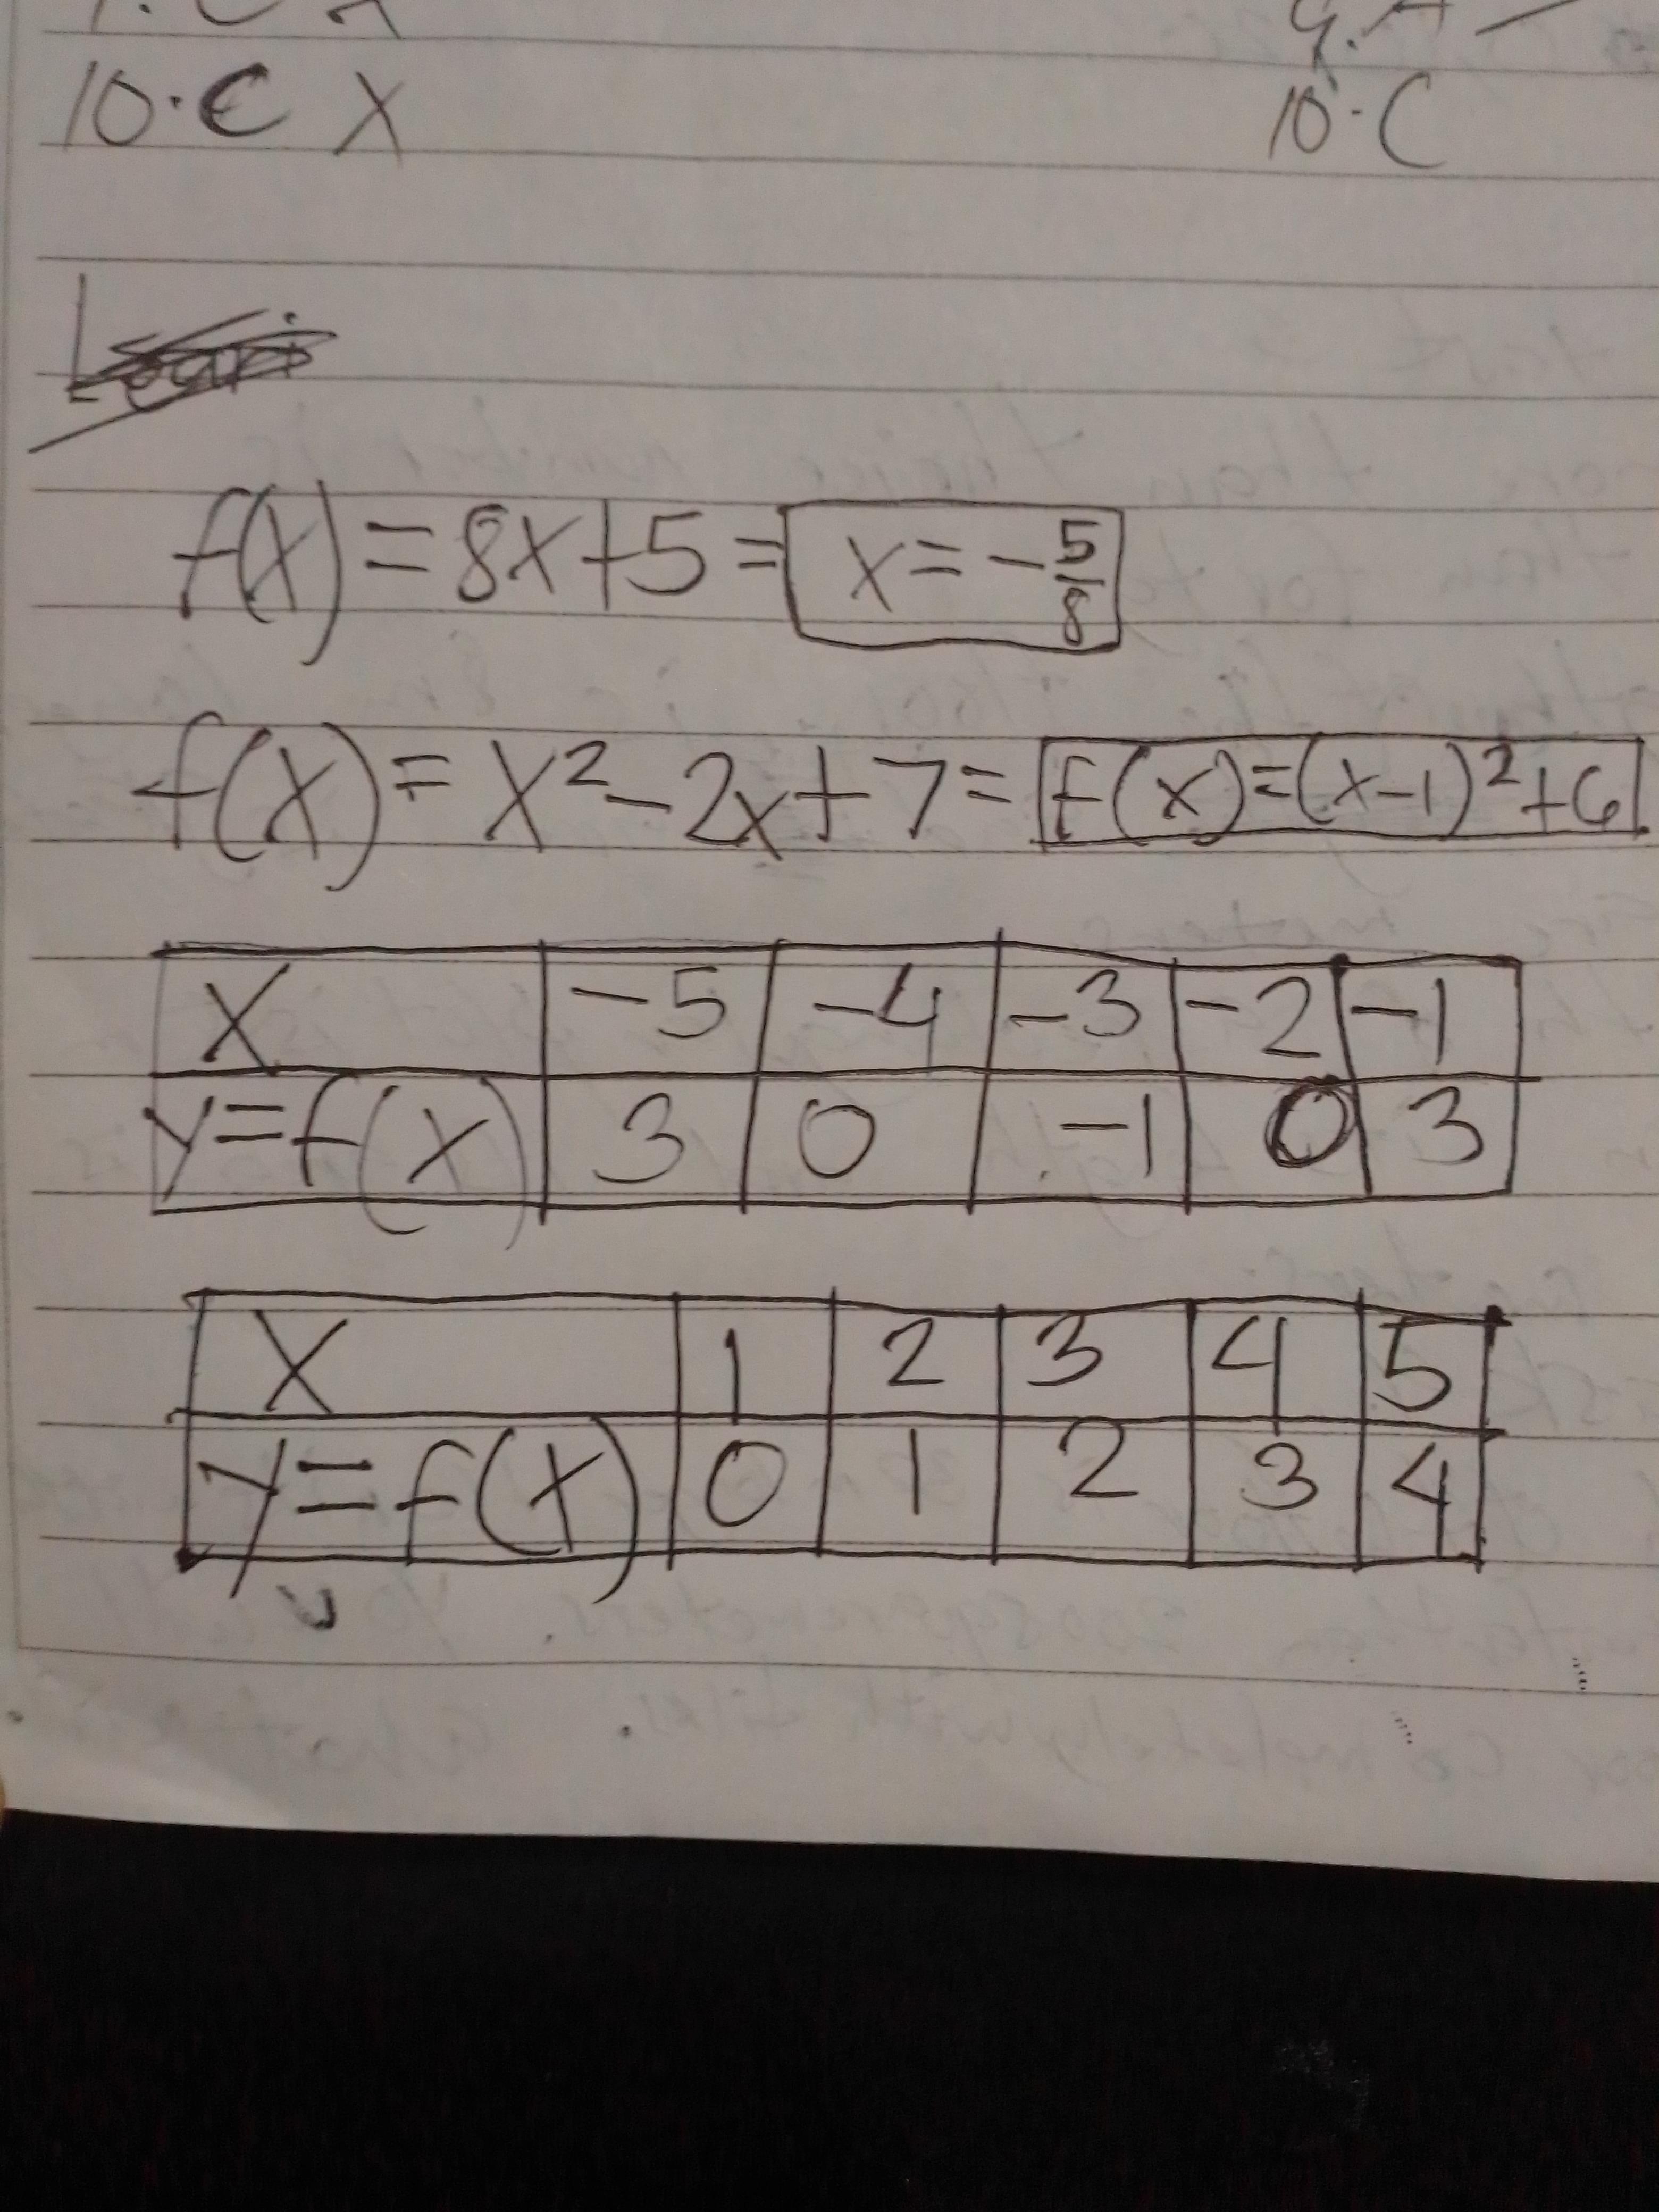 10. C X
10. C
f(x) = 8x+5 = x = -5/8
f(x) = x² - 2x + 7 = f(x) = (x-1)² + 6
X -5 -4 -3 -2 -1
y = f(x) 3 0 -1 0 3
X 1 2 3 4 5
y = f(x) 0 1 2 3 4